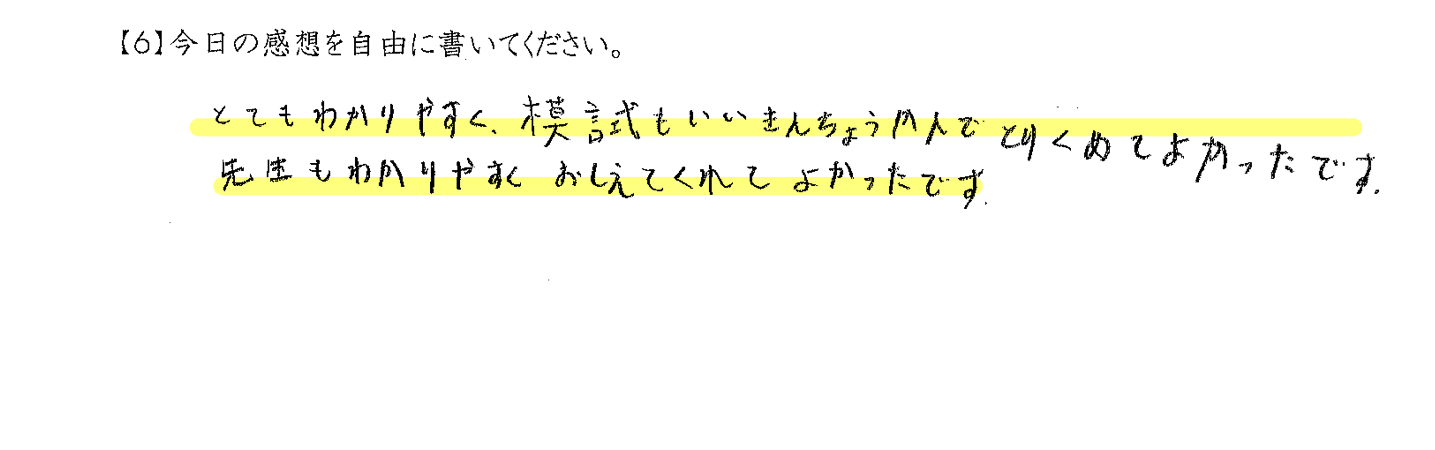 【6】今日の感想を自由に書いてください。
とてもわかりやすく、模試もいいきんちょうかんでとりくめてよかったです。
先生もわかりやすくおしえてくれてよかったです。